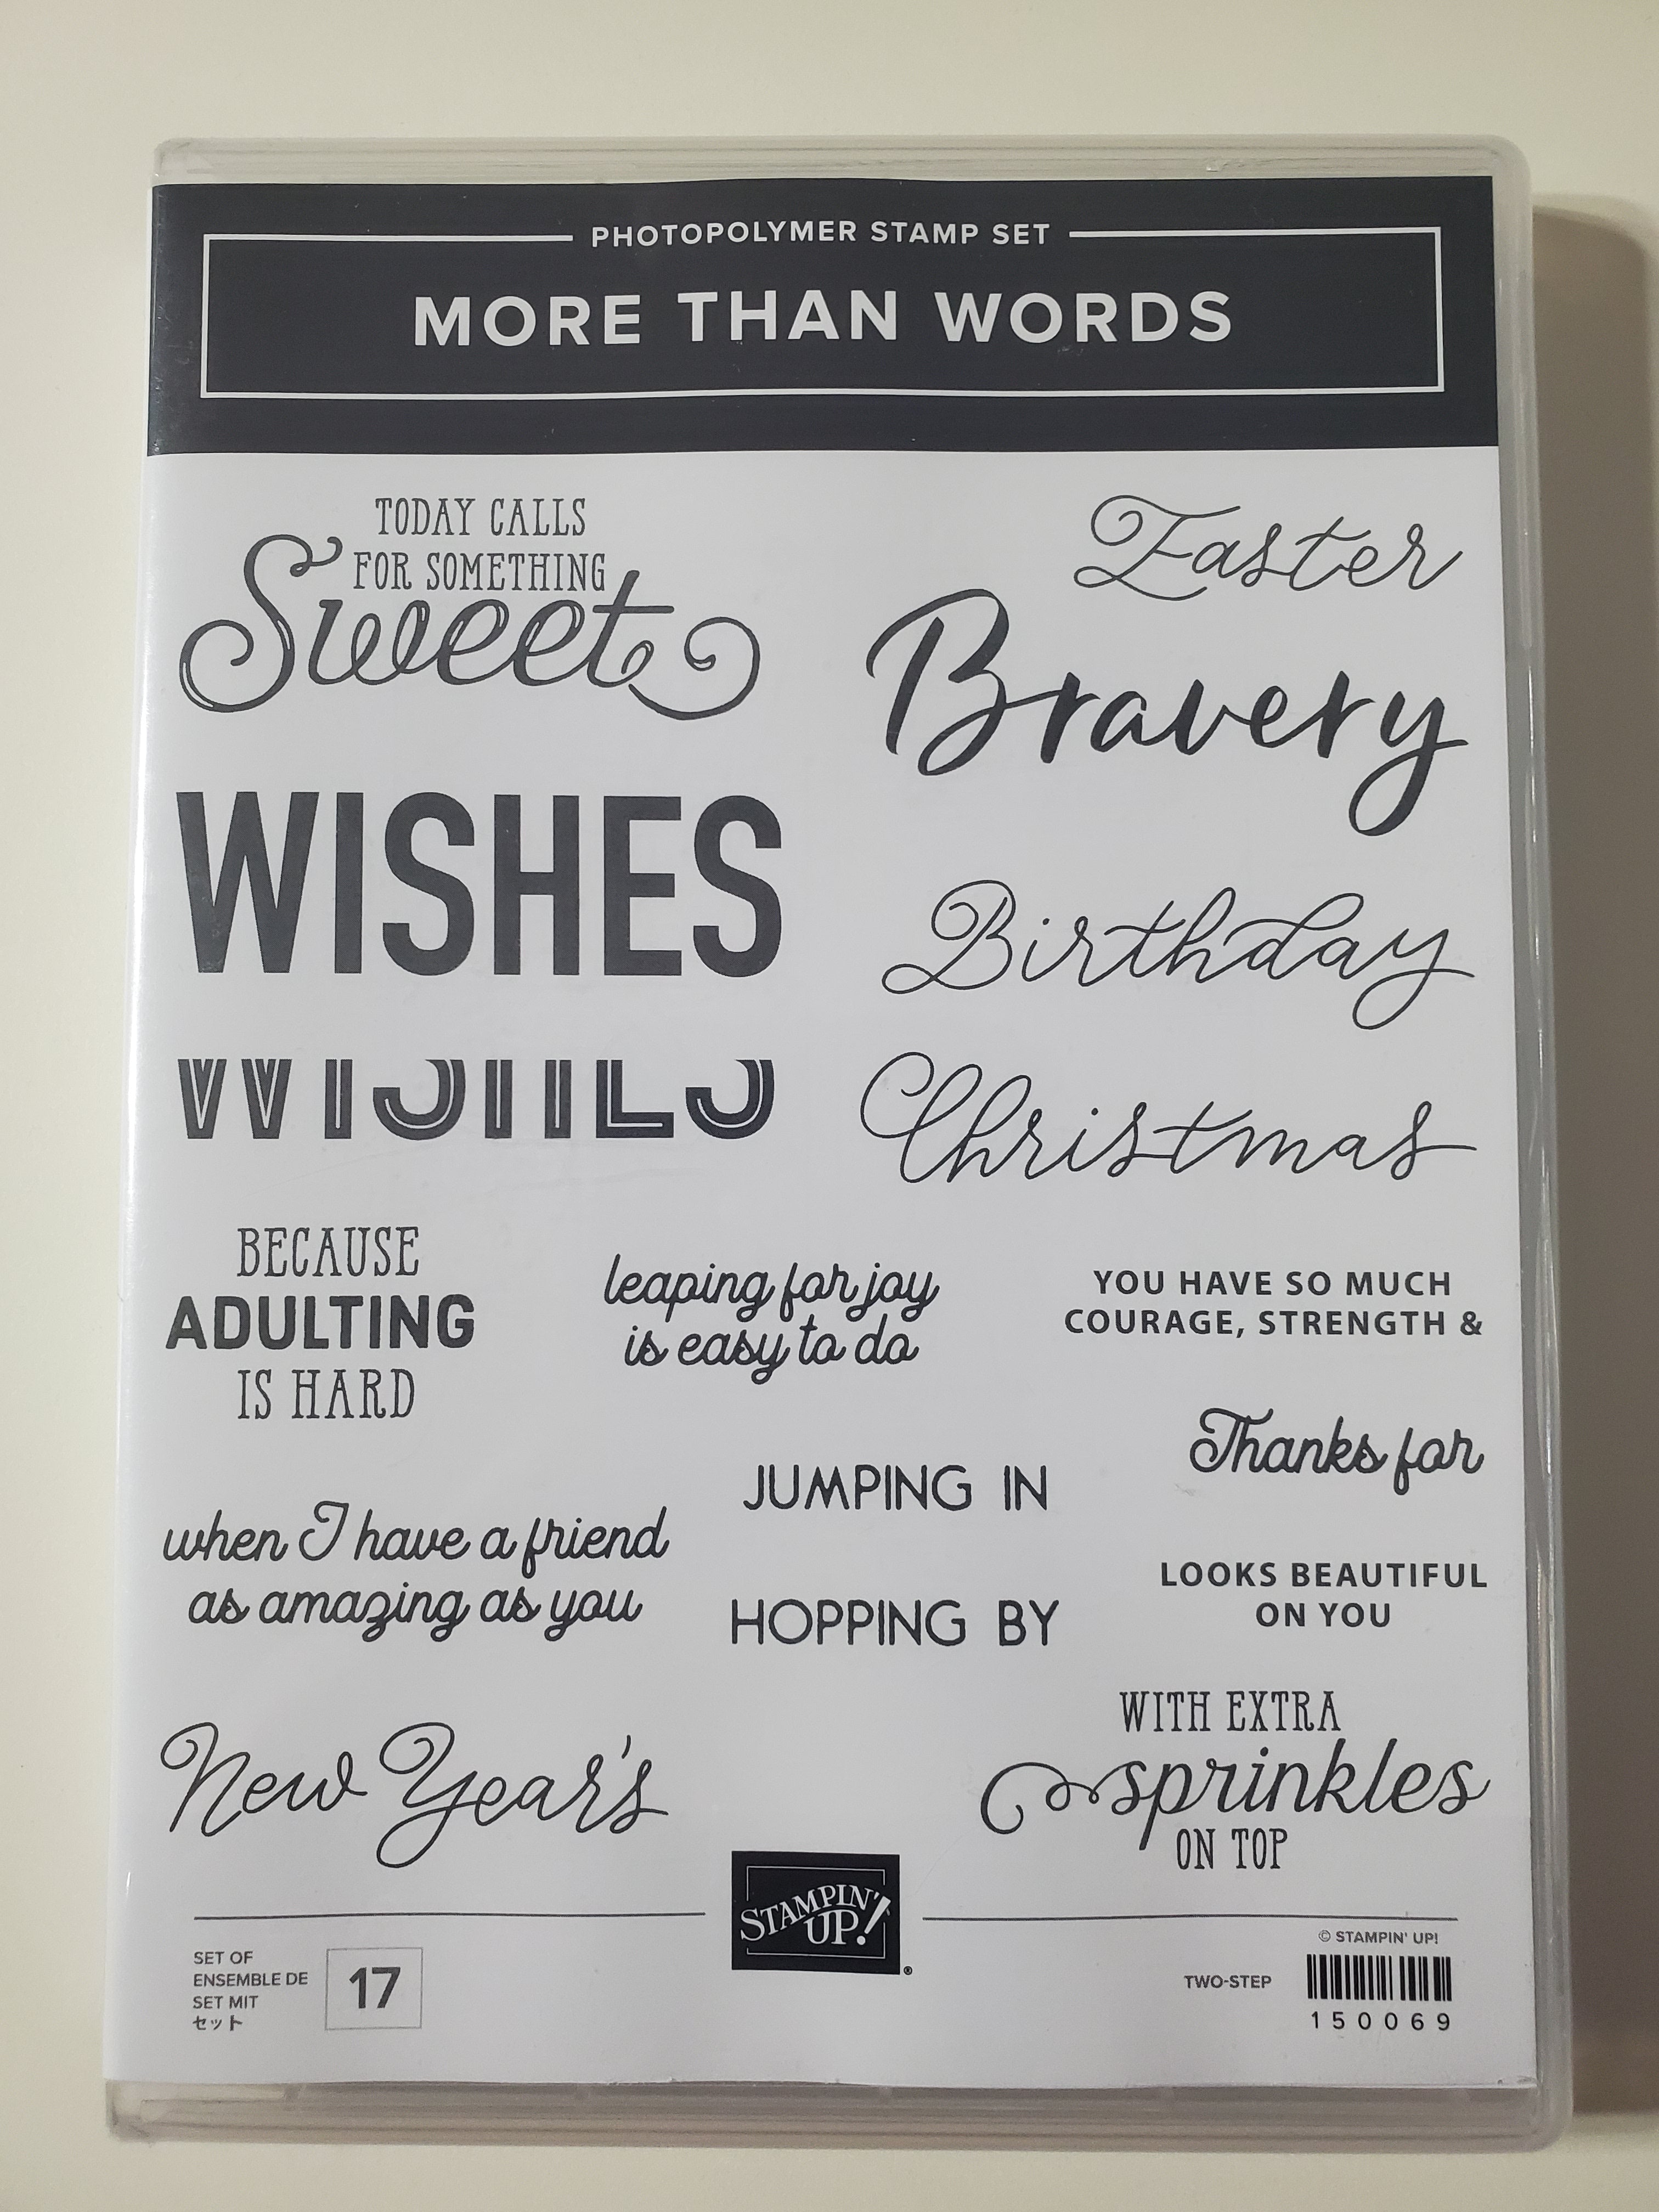 PHOTOPOLYMER STAMP SET
MORE THAN WORDS
TODAY CALLS
FOR SOMETHING
Sweet
Easter
Bravery
WISHES
Birthday
WISHES
Christmas
BECAUSE
ADULTING
IS HARD
leaping for joy
is easy to do
YOU HAVE SO MUCH
COURAGE, STRENGTH &
Thanks for
when I have a friend
as amazing as you
JUMPING IN
HOPPING BY
LOOKS BEAUTIFUL
ON YOU
New Year's
WITH EXTRA
sprinkles
ON TOP
STAMPIN'
UP!®
SET OF
ENSEMBLE DE
SET MIT
セット
17
TWO-STEP
© STAMPIN' UP!
150069